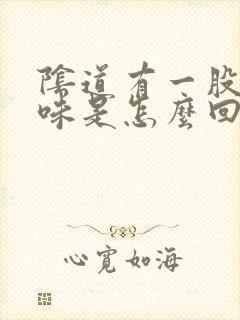 陰道有一股
味是怎麼回
心寬如海